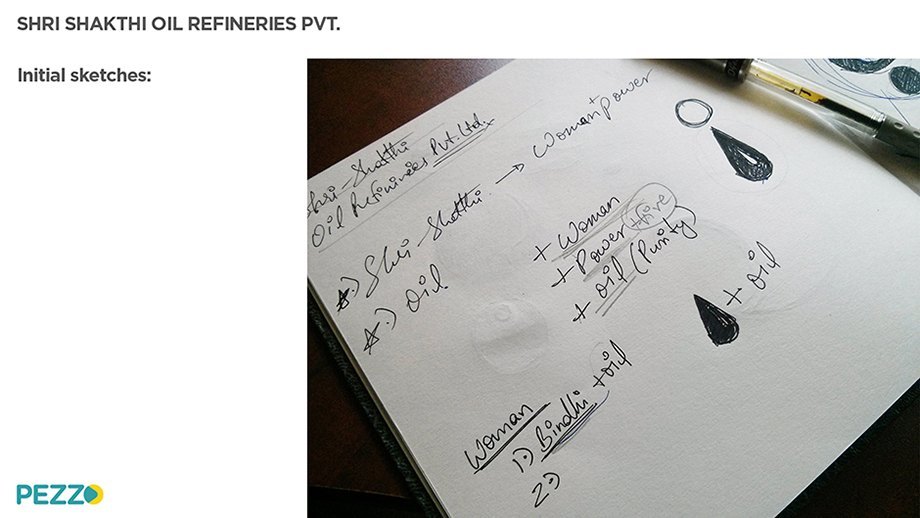 SHRI SHAKTHI OIL REFINERIES PVT.
Initial sketches:
Shri-Shakthi
Oil Refineries Pvt. Ltd.
☆.) Shri-Shakthi → Woman + Power
☆.) Oil
+ Woman
+ Power + fire
+ oil (Purity)
+ oil
Woman
1.) Bindhi + oil
2.)
PEZZO